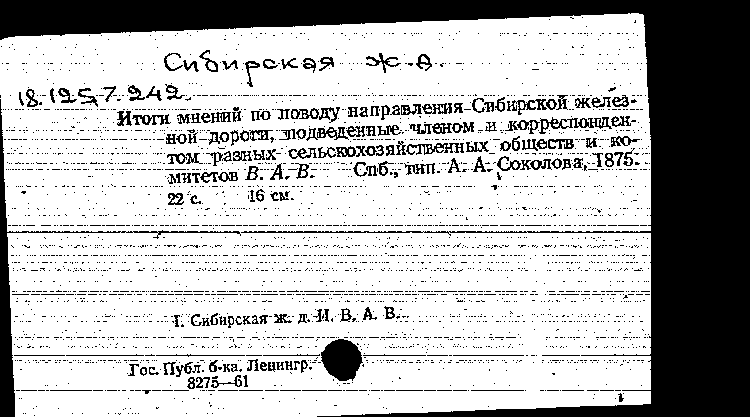 Сибирская ж.д.
18.125.7.242
Итоги мнений по поводу направления Сибирской желез-
ной дороги, подведенные членом и корреспонден-
том разных сельскохозяйственных обществ и ко-
митетов В. А. В. Спб., тип. А. А. Соколова, 1875.
22 с. 16 см.
I. Сибирская ж. д. И. В. А. В.
Гос. Публ. б-ка. Ленингр.
8275—61